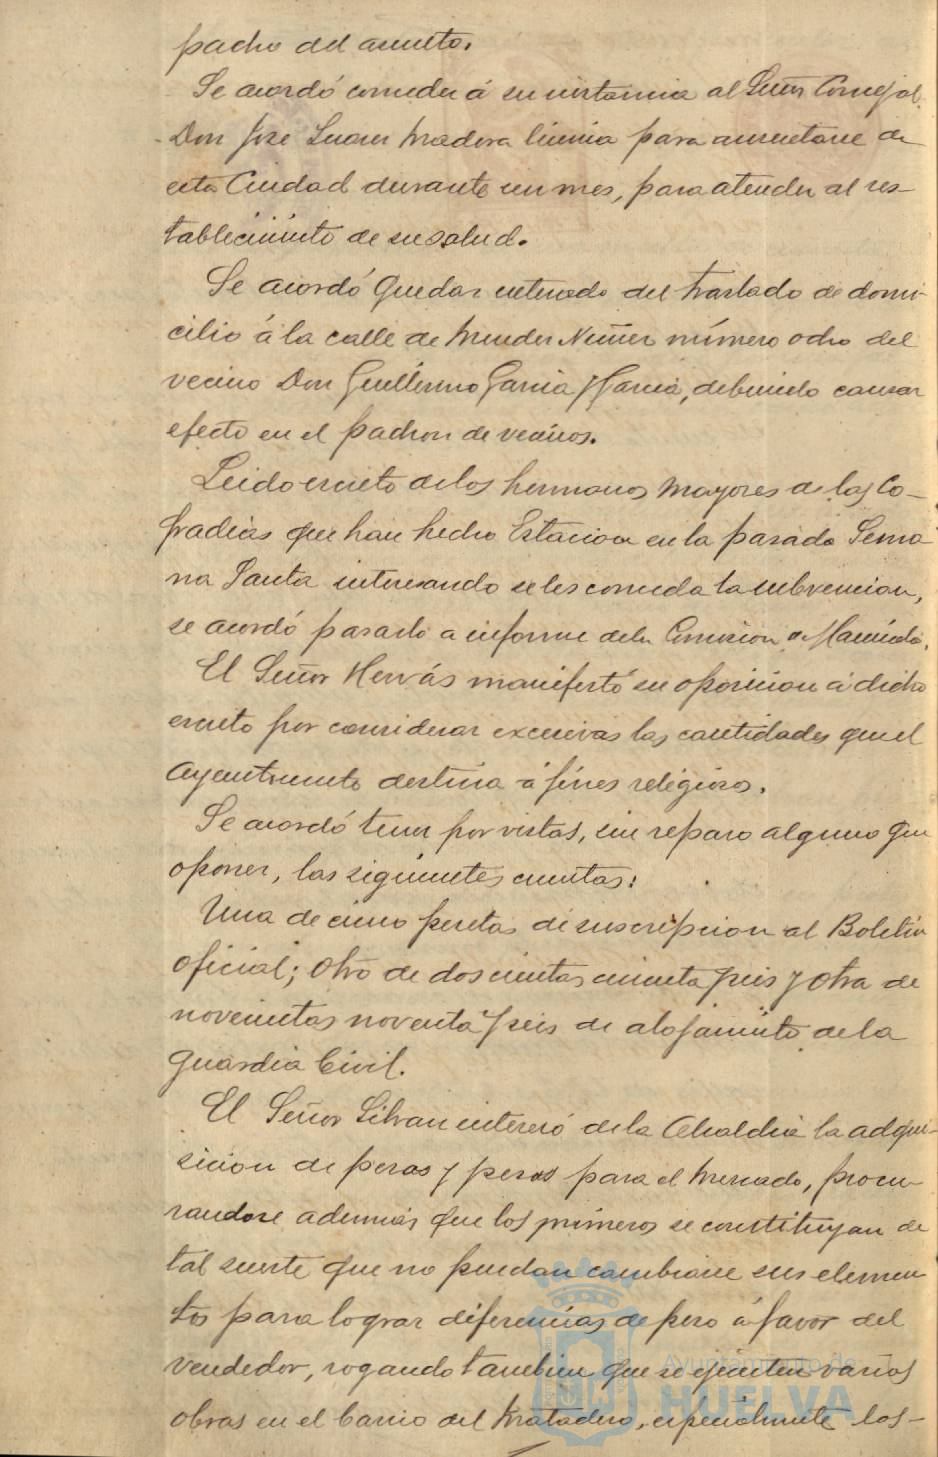 pacho del asunto.
Se acordó conceder á su instancia al Señor Concejal
Don José Suarez Madera licencia para ausentarse de
esta Ciudad durante un mes, para atender al res-
tablecimiento de su salud.
Se acordó quedar enterado del traslado de domi-
cilio á la calle de Mendez Nuñez número ocho del
vecino Don Guillermo Garcia y Garcia, debiendo causar
efecto en el padron de vecinos.
Leido escrito de los hermanos mayores de las Co-
fradias que han hecho Estacion en la pasada Sema
na Santa interesando se les conceda la subvencion,
se acordó pasarlo a informe de la Comision de Hacienda.
El Señor Hervás manifestó su oposicion á dicho
escrito por considerar excesivas las cantidades que el
Ayuntamiento destina á fines religiosos.
Se acordó tener por vistas, sin reparo alguno que
oponer, las siguientes cuentas:
Una de cinco pesetas de suscripcion al Boletin
oficial; otro de doscientas cincuenta y seis y otra de
novecientas noventa y seis de alojamiento de la
Guardia Civil.
El Señor Silvan interesó de la Alcaldia la adqui-
sicion de pesas y pesos para el Mercado, procu-
randose ademas que los primeros se constituyan de
tal suerte que no puedan cambiarse sus elemen
tos para lograr diferencias de peso á favor del
vendedor, rogando tambien que se ejecuten varias
obras en el barrio del Matadero, especialmente las-
Ayuntamiento de
HUELVA